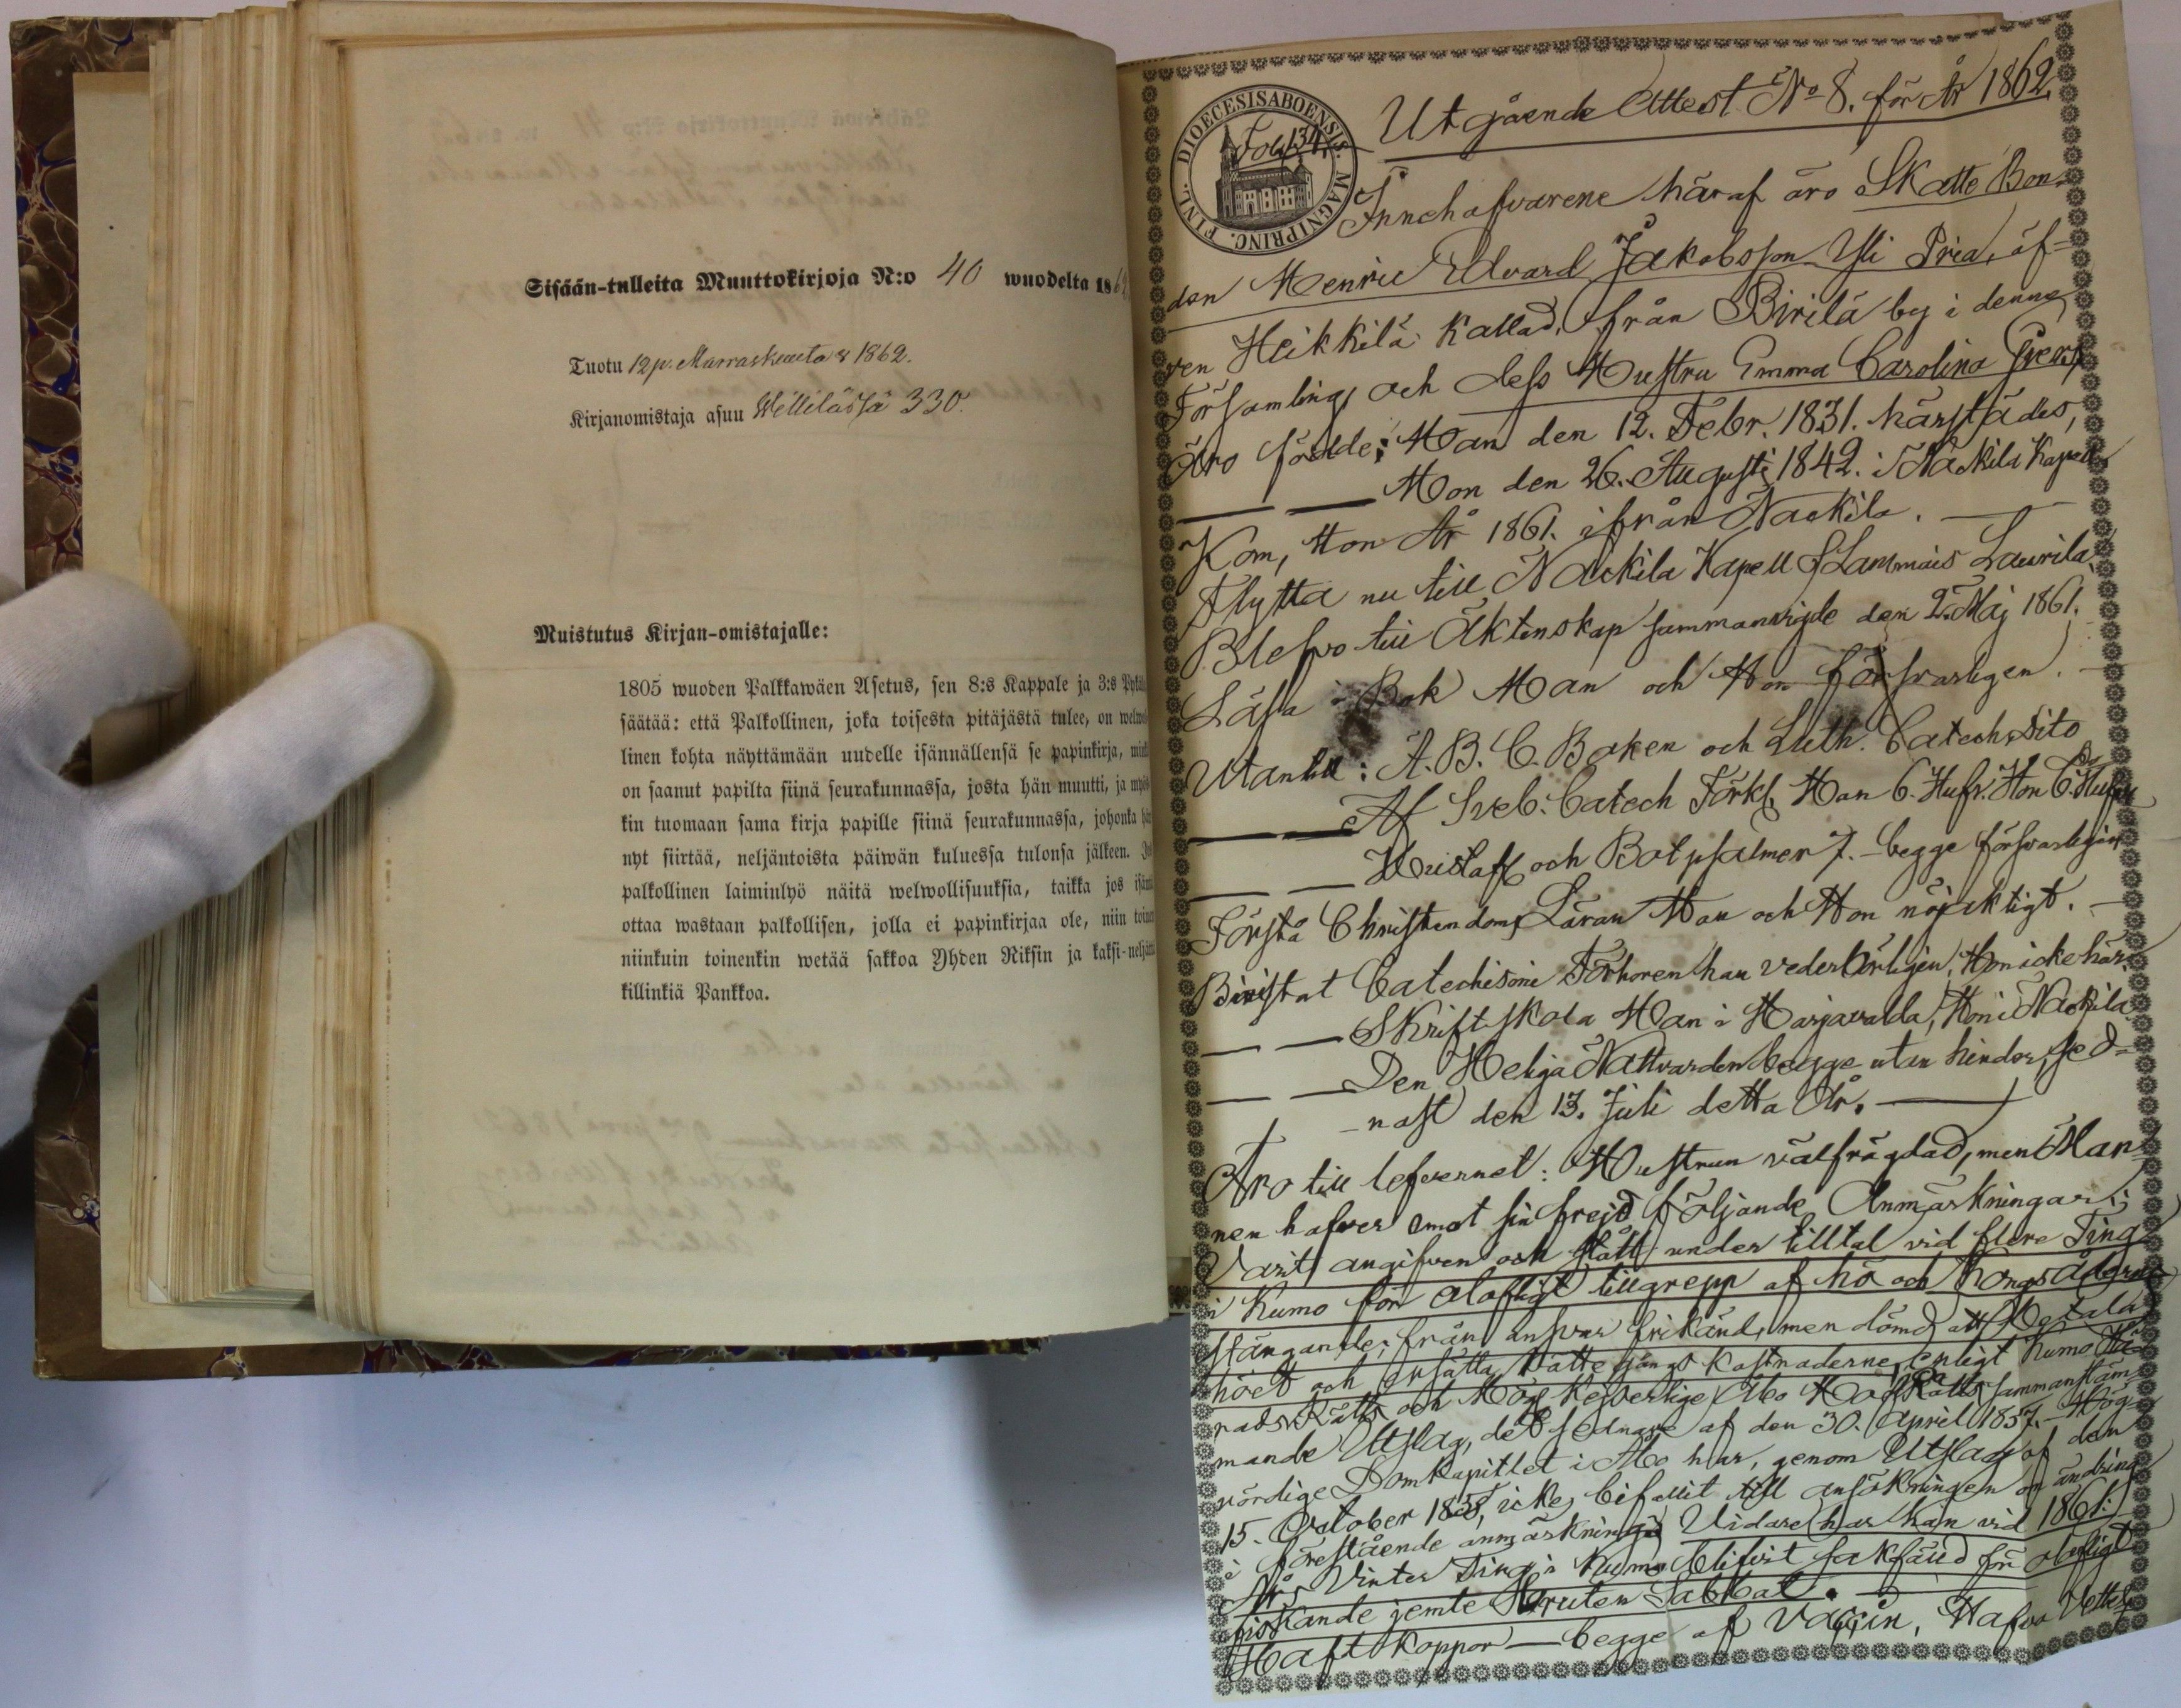 Sisään-tulleita Muuttokirjoja N:o 40 wuodelta 186
Tuotu 12 p. Marraskuuta 1862.
Kirjanomistaja asuu Willilässä 330.
Muistutus Kirjan-omistajalle:
1805 wuoden Palkkawäen Asetus, sen 8:s Kappale ja 3:s
säätää: että Palkollinen, joka toisesta pitäjästä tulee, on
linen kohta näyttämään uudelle isännällensä se papinkirja,
on saanut papilta siinä seurakunnassa, josta hän muutti, ja
kin tuomaan sama kirja papille siinä seurakunnassa, johonka
nyt siirtää, neljäntoista päiwän kuluessa tulonsa jälkeen.
palkollinen laiminlyö näitä welwollisuuksia, taikka jos
ottaa wastaan palkollisen, jolla ei papinkirjaa ole, niin
niinkuin toinenkin wetää sakkoa Yhden Riksin ja kaksi-
killinkiä Pankkoa.
DIOECESIS ABOENSIS. MAGNI PRINC. FINL.
Fol. 134.
Utgående Attest No 8. för År 1862.
Innehafvarene häraf äro Skatte Bon-
den Henric Edvard Jakobsson Yli Pria, äf-
ven Heikkilä kallad, från Birilä by i denna
Församling, och dess Hustru Emma Carolina
Äro födde: Han den 12. Febr. 1831. härstädes,
Hon den 26. Augusti 1842. i Nackila Kapell
Kom, Hon År 1861. ifrån Nackila.
Flytta nu till Nackila Kapell f Lammais Laurila.
Blefvo till Äktenskap sammanvigde den 2. Maj 1861.
Läsa i Bok Han och Hon försvarligen.
Utantill: A.B.C. Boken och Luth. Catech. dito
Af Sveb. Catech Förkl. Han 6. Hufv. Hon 6. Hufv.
Hustafl. och Botpsalmer 7. begge försvarligen
Förstå Christendoms Läran Han och Hon nöjaktigt.
Bivistat Catechismi Förhören han vederbörligen, Hon icke här
Skriftskola Han i Harjavalda, Hon i Nackila
Den Heliga Nattvarden begge utan hinder, sed-
nast den 13. Juli detta År.
Äro till lefvernet: Hustrun välfrägdad, men Man-
nen hafver emot sin frejd följande Anmärkningar:
Varit angifven och stått under tilltal vid flere Ting
i Kumo för olofligt tillgrepp af hö och Kongsådrans
stängande, från ansvar frikänd, men dömd att betala
höet och ersätta Rättegångs kostnaderne, enligt Kumo Hä-
rads Rätts och Högl. Kejserlige Åbo Hof Rätts sammanstäm-
mande Utslag, det sednare af den 30. April 1857. Hög-
vördige Domkapitlet i Åbo har, genom Utslag af den
15. October 1858, icke bifallit till ansökningen om ändring
i förestående anmärkning. Vidare har han vid 1861.
Års Vinter Ting i Kumo blifvit sakfäld för olofligt
fiskande jemte bruten Sabbat.
Haft koppor — begge af Vaccin,